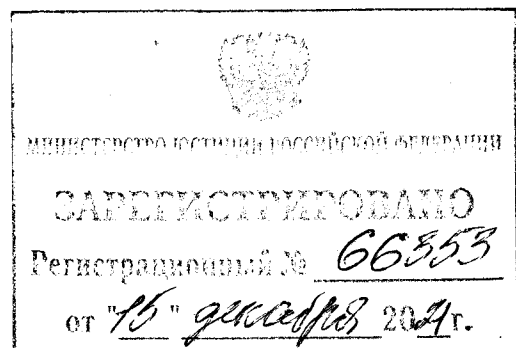 МИНИСТЕРСТВО ЮСТИЦИИ РОССИЙСКОЙ ФЕДЕРАЦИИ
ЗАРЕГИСТРИРОВАНО
Регистрационный № 66353
от "15" декабря 2021г.